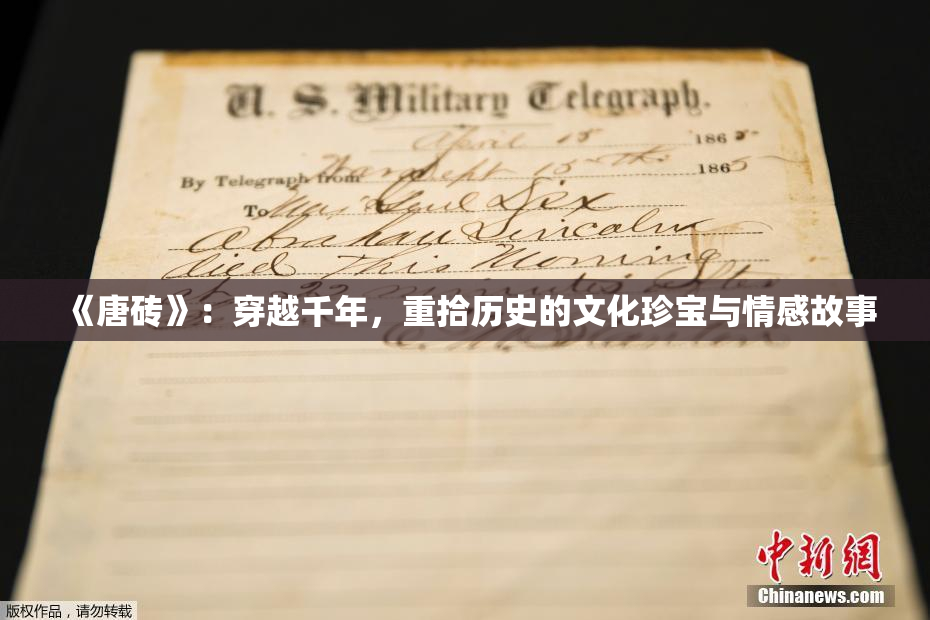 U. S. Military Telegraph.
April 15 1865
By Telegraph from War Dept 15th 1865
To Maj Genl Dix
Abraham Lincoln
died This Morning
at 22 minutes after
《唐砖》：穿越千年，重拾历史的文化珍宝与情感故事
中新网
Chinanews.com
版权作品，请勿转载